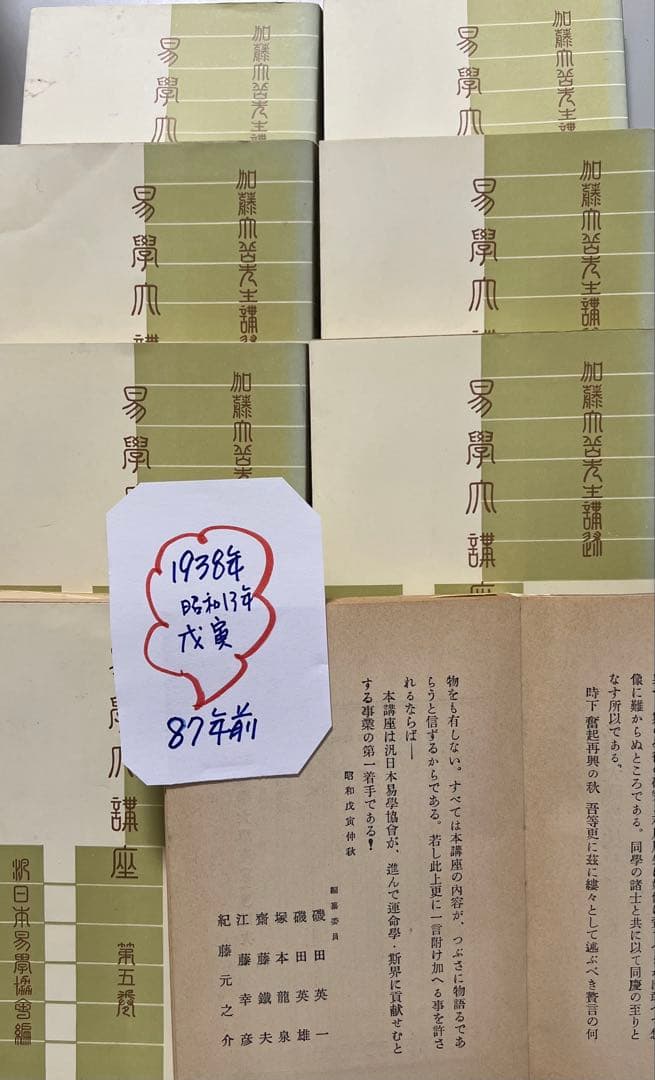 加藤大岳先生講
易學大
加藤大岳先生講
易學大
加藤大岳先生講述
易學大講
加藤大岳先生講
易學大講
加藤大岳
易學
加藤大岳先生講述
易學大講座
1938年
昭和13年
戊寅
87年前
學大講座
第五卷
汎日本易學協會編
像に難からぬところである。同學の諸士と共に以て同慶の至りと
なす所以である。
時下奮起再興の秋、吾等更に玆に縷々として述ぶべき贅言の何
物をも有しない。すべては本講座の内容が、つぶさに物語るであ
らうと信ずるからである。若し此上更に一言附け加へる事を許さ
れるならば――
本講座は汎日本易學協會が、進んで運命學・斯界に貢献せむと
する事業の第一着手である!
昭和戊寅仲秋
編纂委員
磯田英一
磯田英雄
塚本龍泉
齋藤鐵夫
江藤幸彦
紀藤元之介